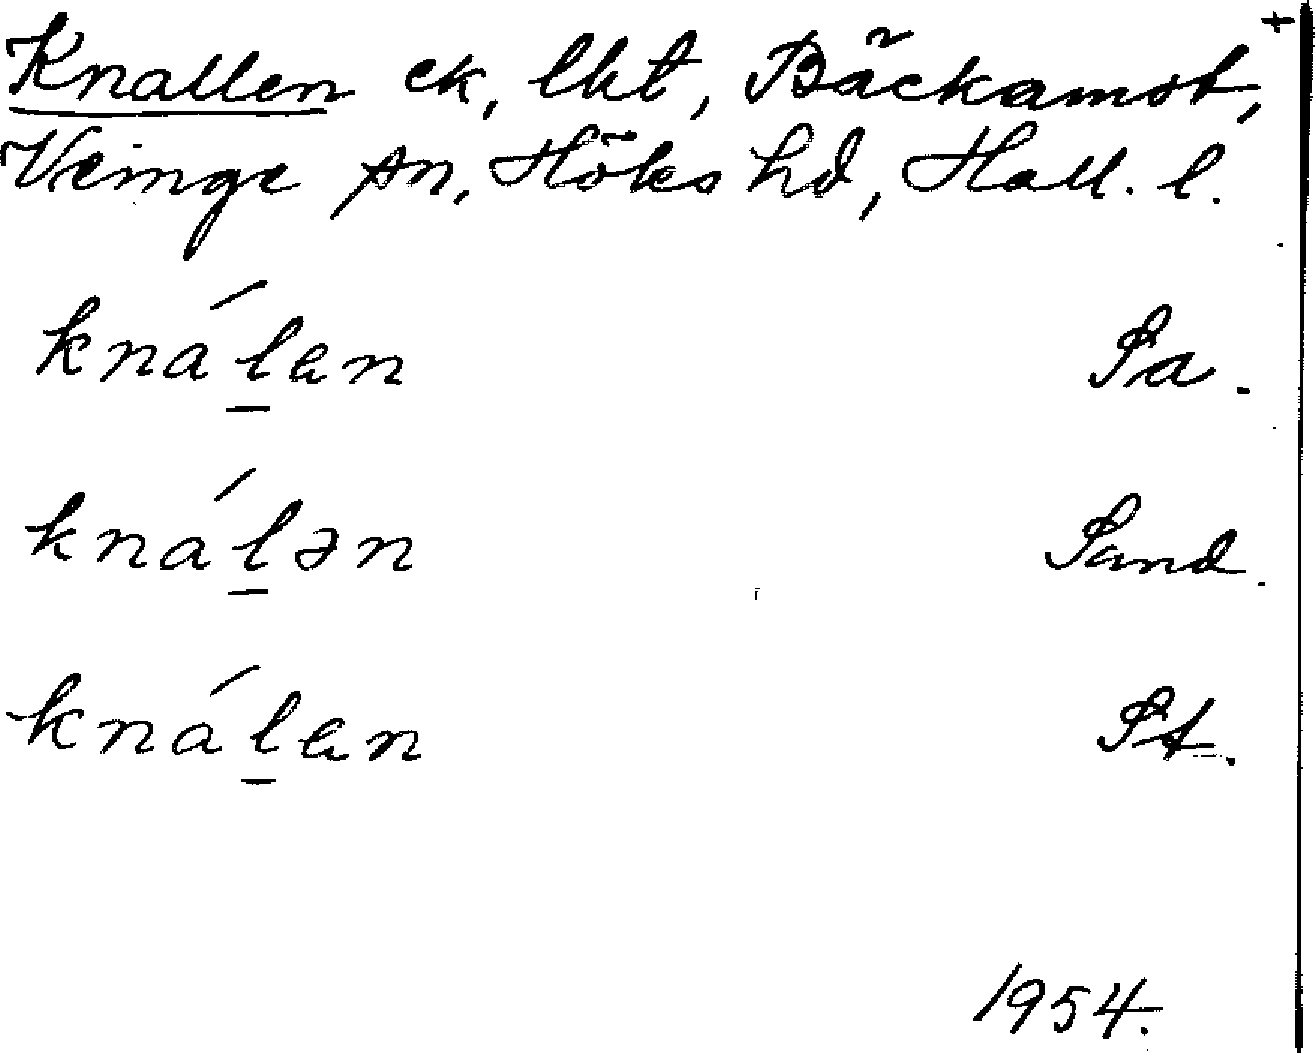 Knallen ck, lht, Bäckamot, +
Veinge sn, Höks hd, Hall. l.
knálan Pa.
knálən Sand.
knálan St.
1954.